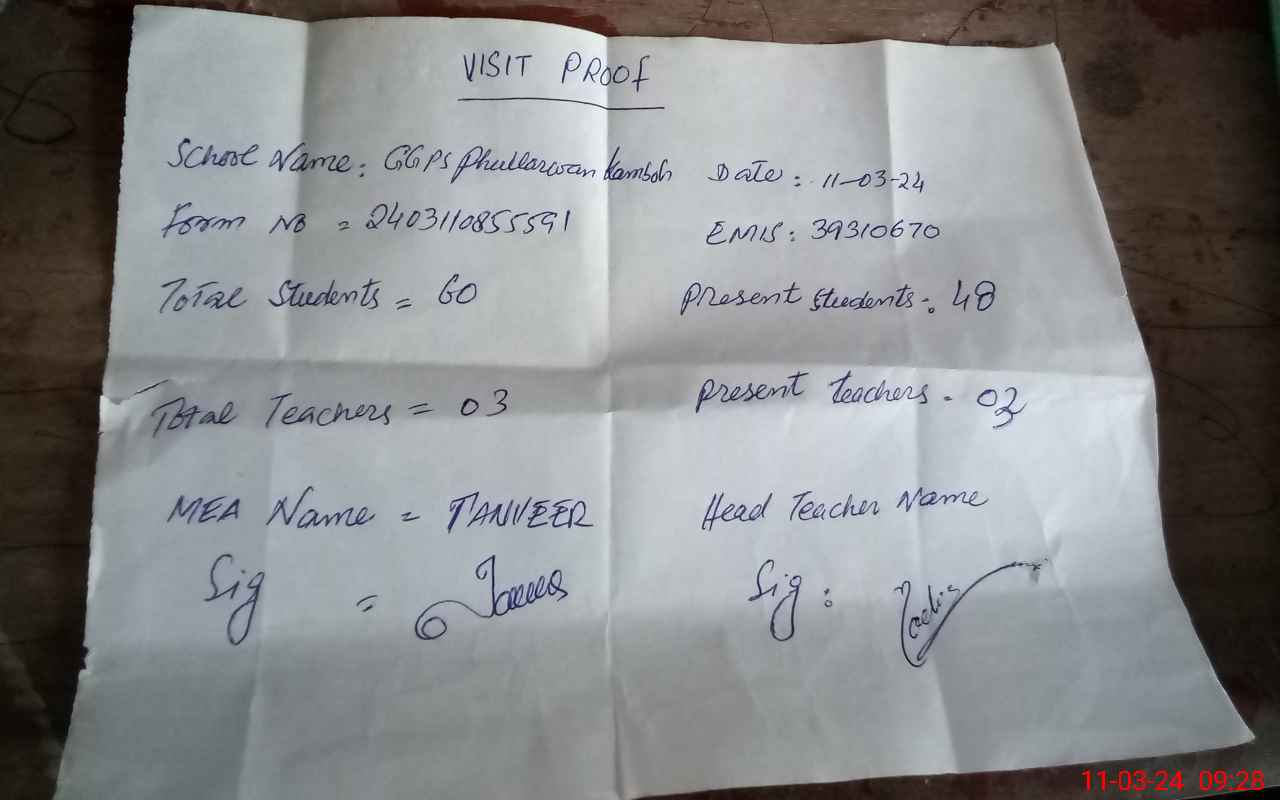 VISIT PROOF
School Name: GGPS Phullarwan Kamboh Date: 11-03-24
Form No = 2403110855591 EMIS: 39310670
Total Students = 60 Present students: 48
Total Teachers = 03 Present teachers - 03
MEA Name = TANVEER Head Teacher Name
Sig = Sig:
11-03-24 09:28